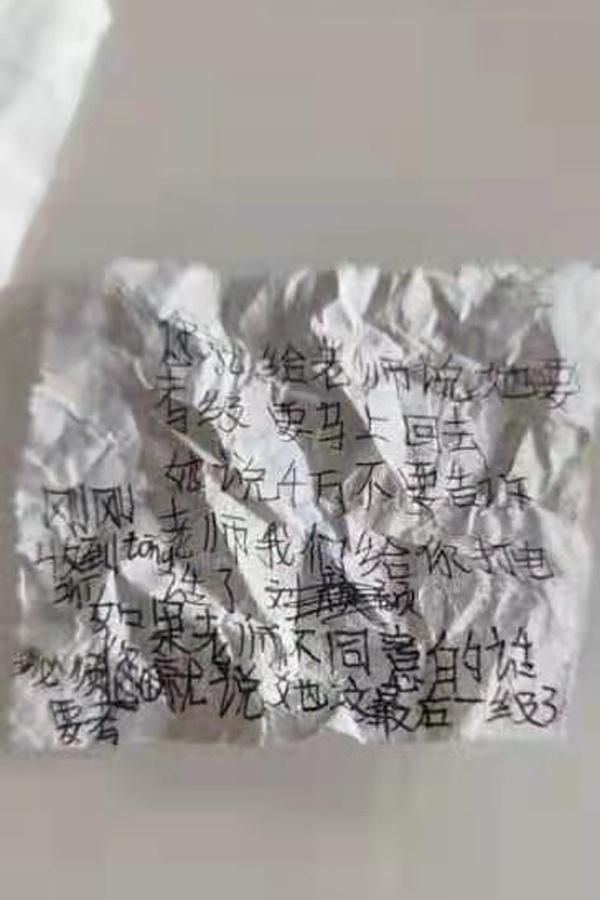 你就给老师说她要
考级 要马上回去
她说千万不要告诉
老师我们给你打电
话了 刘
如果老师不同意的话
你就说她这最后一级了
刚刚
收到tong
必须
要去